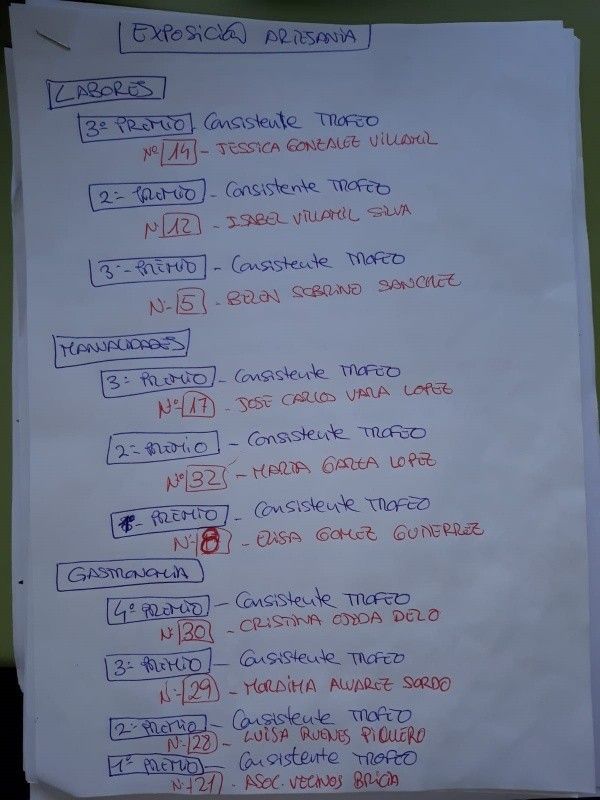 EXPOSICIÓN ARTESANIA
LABORES
3º PREMIO - Consistente TROFEO
Nº 14 - JESSICA GONZALEZ VILLAMIL
2º PREMIO - Consistente TROFEO
Nº 12 - ISABEL VILLAMIL SILVA
3º PREMIO - Consistente TROFEO
Nº 5 - BELEN SOBRINO SANCHEZ
MANUALIDADES
3º PREMIO - Consistente TROFEO
Nº 17 - JOSE CARLOS VARA LOPEZ
2º PREMIO - Consistente TROFEO
Nº 32 - MARTA GARCA LOPEZ
1º PREMIO - Consistente TROFEO
Nº 8 - ELISA GOMEZ GUTIERREZ
GASTRONOMIA
4º PREMIO - Consistente TROFEO
Nº 30 - CRISTINA OJEDA
3º PREMIO - Consistente TROFEO
Nº 29 - MORAIMA ALVAREZ SORDO
2º PREMIO - Consistente TROFEO
Nº 28 - LUISA RUENES PIQUERO
1º PREMIO - Consistente TROFEO
Nº 21 - ASOC. VECINOS BRICIA